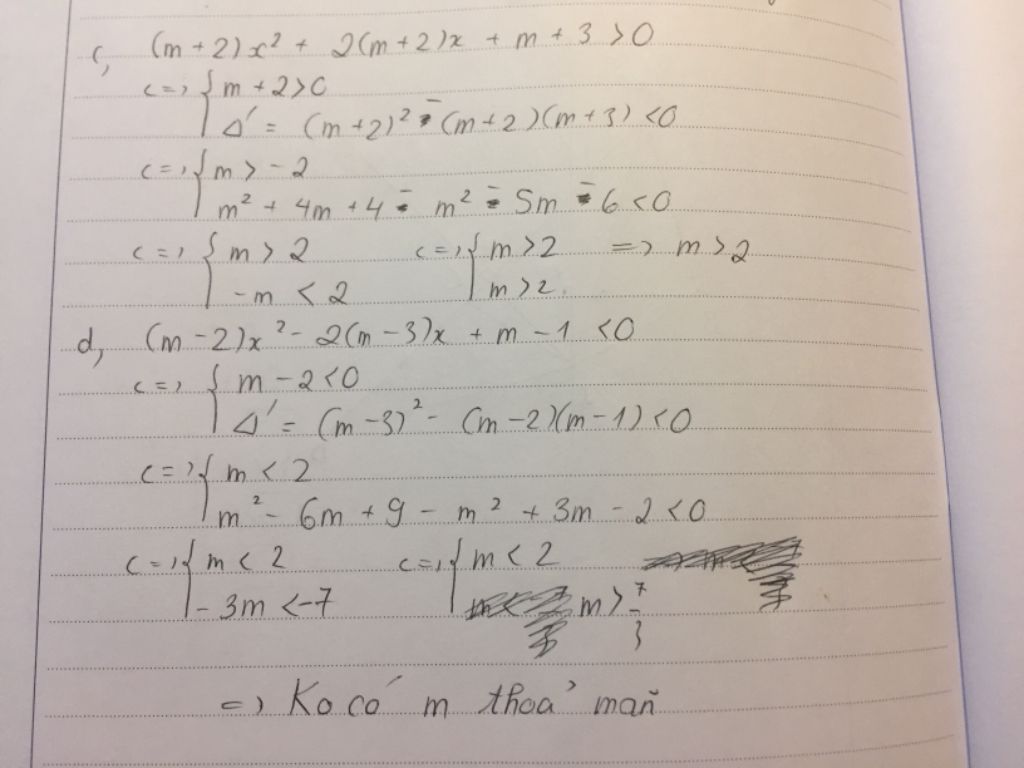 c, (m+2)x² + 2(m+2)x + m + 3 > 0
<=> { m + 2 > 0
Δ' = (m+2)² - (m+2)(m+3) < 0
<=> { m > -2
m² + 4m + 4 - m² - 5m - 6 < 0
<=> { m > 2 <=> { m > 2 => m > 2
-m < 2 m > 2
d, (m-2)x² - 2(m-3)x + m - 1 < 0
<=> { m - 2 < 0
Δ' = (m-3)² - (m-2)(m-1) < 0
<=> { m < 2
m² - 6m + 9 - m² + 3m - 2 < 0
<=> { m < 2 <=> { m < 2
-3m < -7 m > 7/3
=> Ko có m thoả mãn